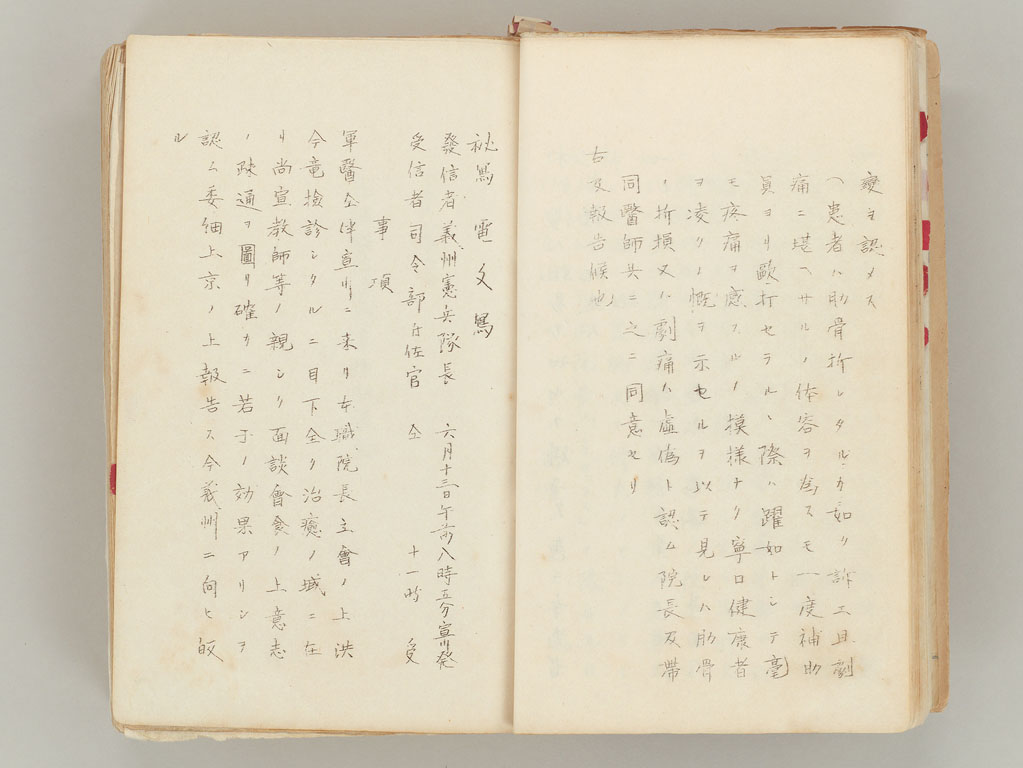 變ヲ認メス
ヘ患者ハ肋骨折レタルカ如ク訴エ且劇
痛ニ堪ヘサルノ体容ヲ為スモ一度補助
員ヨリ歐打セラルヽ際ハ躍如トシテ毫
モ疼痛ヲ感スルノ摸樣ナク寧ロ健康者
ヲ凌クノ慨ヲ示セルヲ以テ見レハ肋骨
ノ折損又ハ劇痛ハ虛偽ト認ム院長及滯
同醫師共ニ之ニ同意セリ
右及報告候也
秘寫電文寫
發信者義州憲兵隊長 六月十三日午前八時五分宣川発
受信者司令部付佐官 仝 十一時 受
事項
軍醫仝伴宣川ニ来リ本職院長立會ノ上洪
今竜検診シタルニ目下全ク治癒ノ域ニ在
リ尚宣教師等ノ親シク面談會食ノ上意志
ノ疎通ヲ圖リ確カニ若干ノ効果アリシヲ
認ム委細上京ノ上報告ス今義州ニ向ヒ皈
ル